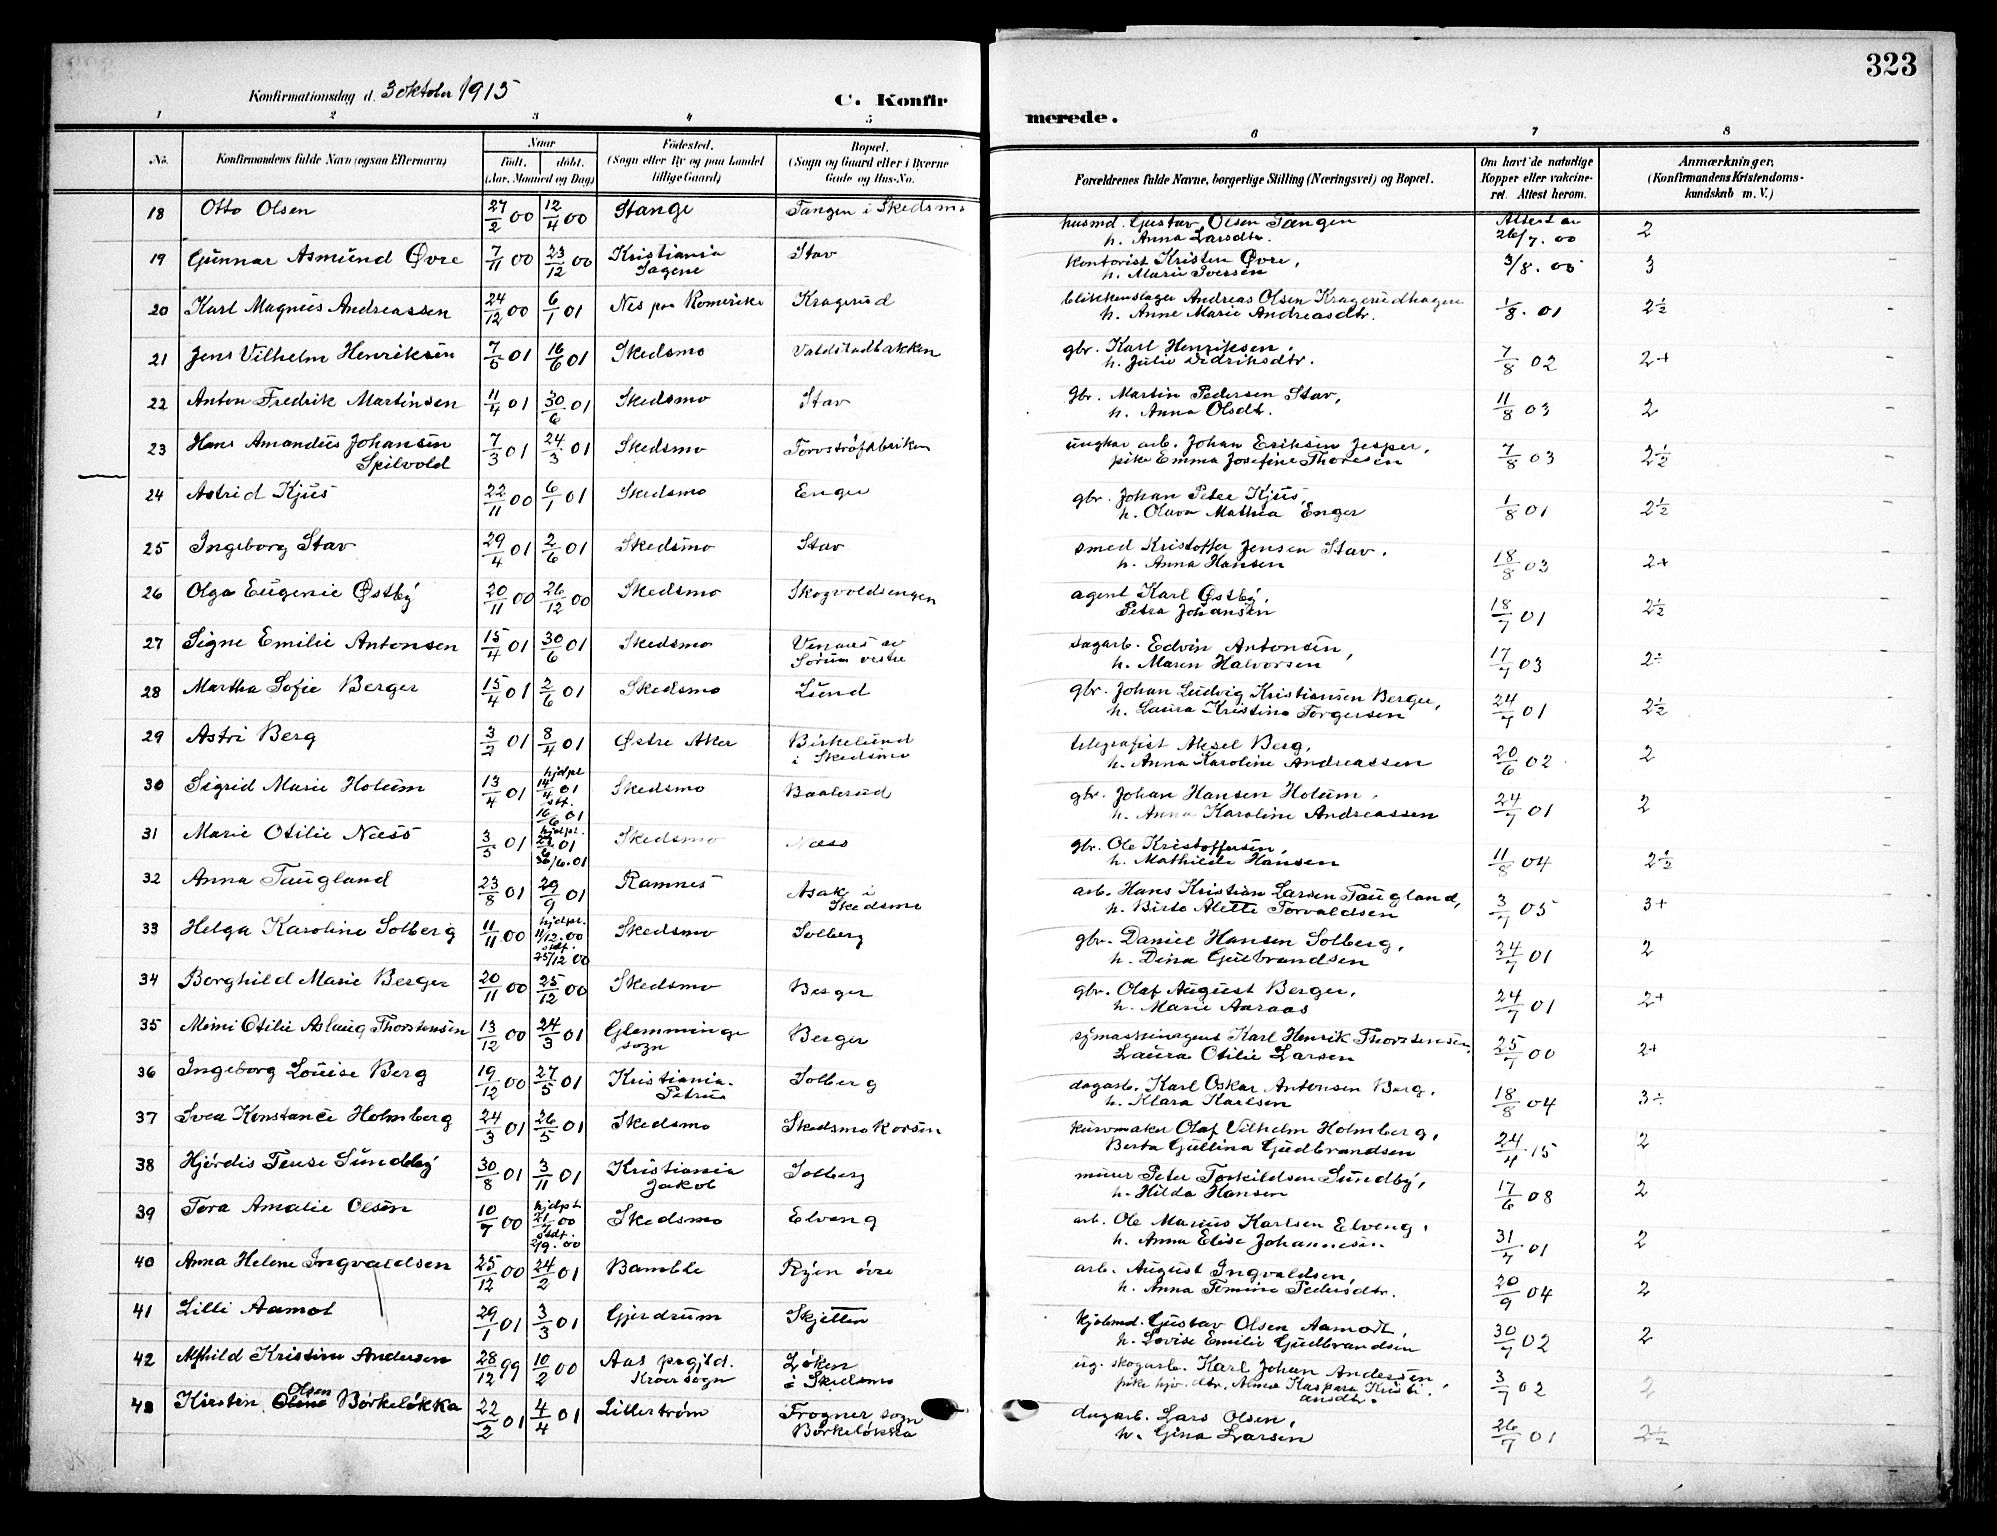 323
Konfirmationsdag d. 3 oktober 1915
C. Konfirmerede.
1 2 3 4 5 6 7 8
No. | Konfirmandens fulde Navn (ogsaa Efternavn) | Naar født. døbt. (Aar, Maaned og Dag) | Fødested. (Sogn eller By og paa Landet tillige Gaard) | Bopæl. (Sogn og Gaard eller i Byerne Gade og Hus-No. | Forældrenes fulde Navne, borgerlige Stilling (Næringsvei) og Bopæl. | Om havt de naturlige Kopper eller vakcineret. Attest herom. | Anmærkninger, (Konfirmandens Kristendomskundskab m. V.)
18 Otto Olsen 27/2 00 12/4 00 Stange Tangen i Skedsmo husmd. Gustav Olsen Tangen h. Anna Larsdtr. Attest av 26/7. 00 2
19 Gunnar Asmund Øvre 7/11 00 23/12 00 Kristiania Sagene Stav kontorist Kristen Øvre, h. Marie Iversen 3/8. 05 3
20 Karl Magnus Andreassen 24/12 00 6/1 01 Nes paa Romerike Kragerud blikkenslager Andreas Olsen Kragerudhagen h. Anne Marie Andreasdtr. 1/8. 01 2½
21 Jens Vilhelm Henriksen 7/5 01 16/6 01 Skedsmo Valdstadbakken gbr. Karl Henriksen, h. Julie Didriksdtr. 7/8 02 2+
22 Anton Fredrik Martinsen 11/4 01 30/6 01 Skedsmo Stav gbr. Martin Pedersen Stav, h. Anna Olsdt. 11/8 03 2
23 Hans Amandus Johansen Spilvold 7/3 01 24/3 01 Skedsmo Torvstrøfabriken ungkar arb. Johan Eriksen Jesper, pike Emma Josefine Thoresen 7/8 03 2½
24 Astrid Kjus 22/11 00 6/1 01 Skedsmo Enger gbr. Johan Peter Kjus, h. Olava Mathea Enger 1/8 01 2½
25 Ingeborg Stav 29/4 01 2/6 01 Skedsmo Stav smed Kristoffer Jensen Stav. h. Anna Hansen 18/8 03 2+
26 Olga Eugenie Østby 20/11 00 26/12 00 Skedsmo Skogvoldsengen agent Karl Østby, Petra Johansen 18/7 01 2½
27 Signe Emilie Antonsen 15/4 01 30/6 01 Skedsmo Vennes av Sørum vestre sagarb. Edvin Antonsen, h. Maren Halvorsen 17/7 03 2÷
28 Martha Sofie Berger 15/4 01 2/6 01 Skedsmo Lund gbr. Johan Ludvig Kristiansen Berger, h. Laura Kristine Torgersen 24/7 01 2½
29 Astri Berg 3/2 01 8/4 01 Østre Aker Birkelund i Skedsmo telegrafist Aksel Berg, h. Anna Karoline Andreassen 20/6 02 2
30 Sigrid Marie Holum 13/4 01 hjdpt. 14/4 01 stf. 16/6 01 Skedsmo Baalerud gbr. Johan Hansen Holum. h. Anna Karoline Andreassen 24/7 01 2
31 Marie Otilie Næss 3/5. 01 hjdpt. 01 30/6. 01 Skedsmo Næss gbr. Ole Kristoffersen, h. Mathilde Hansen 11/8 04 2½
32 Anna Taugland 23/8 01 29/9 01 Ramnes Asak i Skedsmo arb. Hans Kristian Larsen Taugland, h. Birte Alette Torvaldsen 3/7 05 3+
33 Helga Karoline Solberg 11/11 00 hjdpt. 11/12. 00 stdf. 25/12 00 Skedsmo Solberg gbr. Daniel Hansen Solberg, h. Dina Gulbrandsen 24/7 01 2
34 Borghild Marie Berger 20/11 00 25/12 00 Skedsmo Berger gbr. Olaf August Berger, h. Marie Aaraas 24/7 01 2+
35 Mimi Otilie Aslaug Thorstensen 13/12 00 24/3 01 Glemminge sogn Berger symaskinagent Karl Henrik Thorstensen, Laura Otilie Larsen 25/7 00 2+
36 Ingeborg Louise Berg 19/12 00 27/5 01 Kristiania. Petrus Solberg dagarb. Karl Oskar Antonsen Berg, h. Klara Karlsen 18/8 04 3÷
37 Svea Konstance Holmberg 24/3 01 26/5 01 Skedsmo Skedsmokorsen kurvmaker Olaf Vilhelm Holmberg, Berta Gullina Gudbrandsen 24/4. 15 2
38 Hjørdis Terese Sundby 30/8 01 3/11 01 Kristiania Jakob Solberg murer Peter Torkildsen Sundby, h. Hilda Hansen 17/6 08 2
39 Tora Amalie Olsen 10/7 00 hjdpt. 21/7 00 stdf. 2/9. 00 Skedsmo Elveng arb. Ole Marius Karlsen Elveng. h. Anna Elise Johannesen 31/7 01 2
40 Anna Helene Ingvaldsen 25/12 00 24/2 01 Bamble Ryen øvre arb. August Ingvaldsen, h. Anna Temine Pedersdtr. 20/9 04 2
41 Lilli Aamot 29/1 01 3/3 01 Gjerdrum Skjetten Gustav Olsen Aamodt, h. Lovise Emilie Gudbrandsen 30/7 02 2
42 Alfhild Kristine Andersen 28/12 99 10/2 00 Aas prgjld. Kroer sogn Løken i Skedsmo ug. skogarb. Karl Johan Andersen, pike Alma Kaspara Kristiansdtr. 3/7 02 2
43 Kirsten Olsen Børkeløkka 22/2 01 4/4 01 Lillestrøm Frogner sogn Børkeløkka dagarb. Lars Olsen, h. Gina Larsen 26/7 01 2½